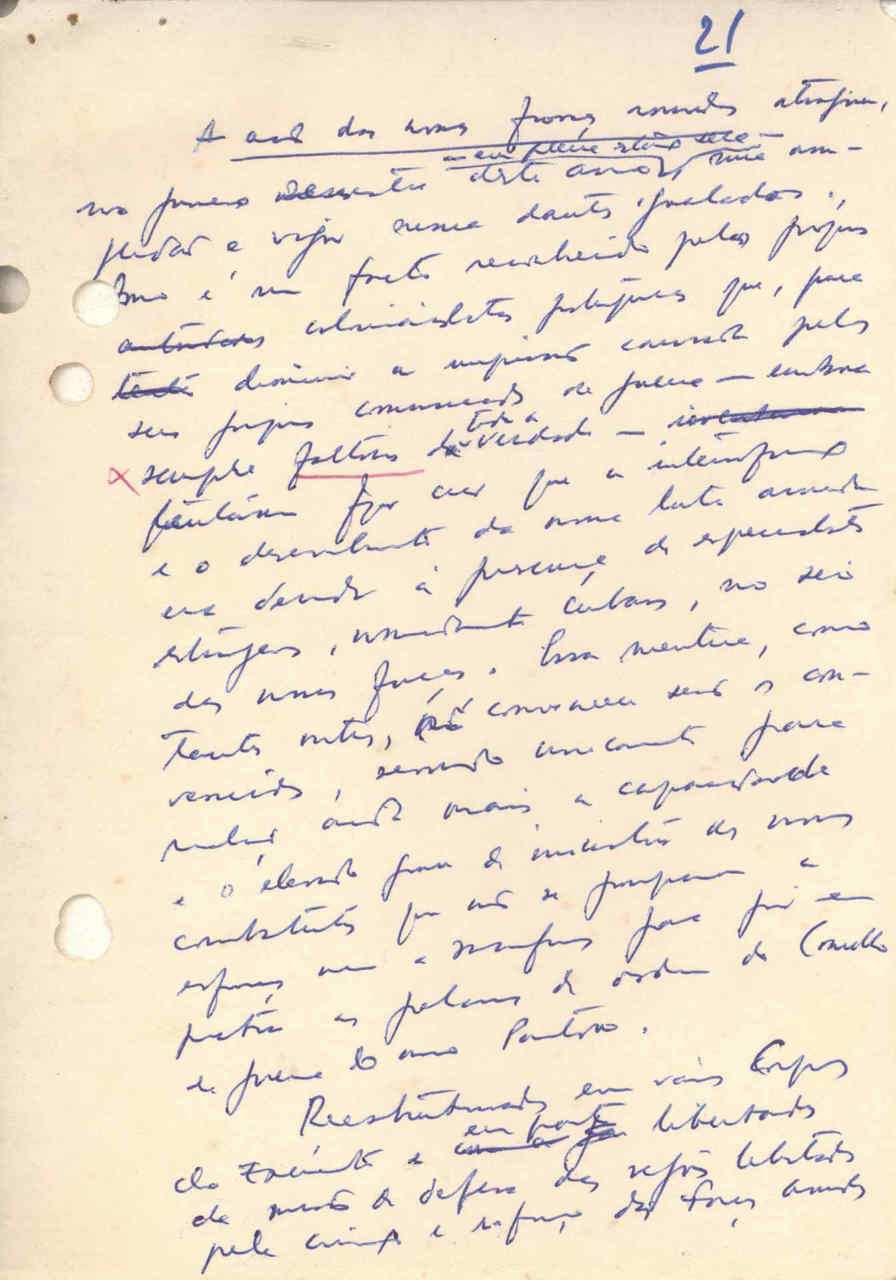 21
A acção das nossas forças armadas atingiu,
— em plena estação seca —
no primeiro semestre deste ano, uma am-
plidão e vigor nunca dantes igualados.
Isso é um facto reconhecido pelos próprios
autoridades colonialistas portugueses que, para
tentar diminuir a impressão causada pelos
seus próprios comunicados de guerra — embora
toda a
sempre faltos da verdade —
fazer crer que a
e o desenvolvimento da nossa luta armada
era devido à presença de especialistas
estrangeiros, nomeadamente cubanos, no seio
das nossas forças. Essa mentira, como
tantas outras, só convenceu senão os con-
vencidos, servindo unicamente para
realçar ainda mais a capacidade
e o elevado grau de iniciativa dos nossos
combatentes que não se pouparam a
esforços nem a sacrifícios para pôr em
prática as palavras de ordem do Conselho
de guerra do nosso Partido.
Reestruturadas em vários Corpos
em parte
do Exército e libertadas
da missão de defesa das regiões libertadas
pela criação e reforço das Forças Armadas